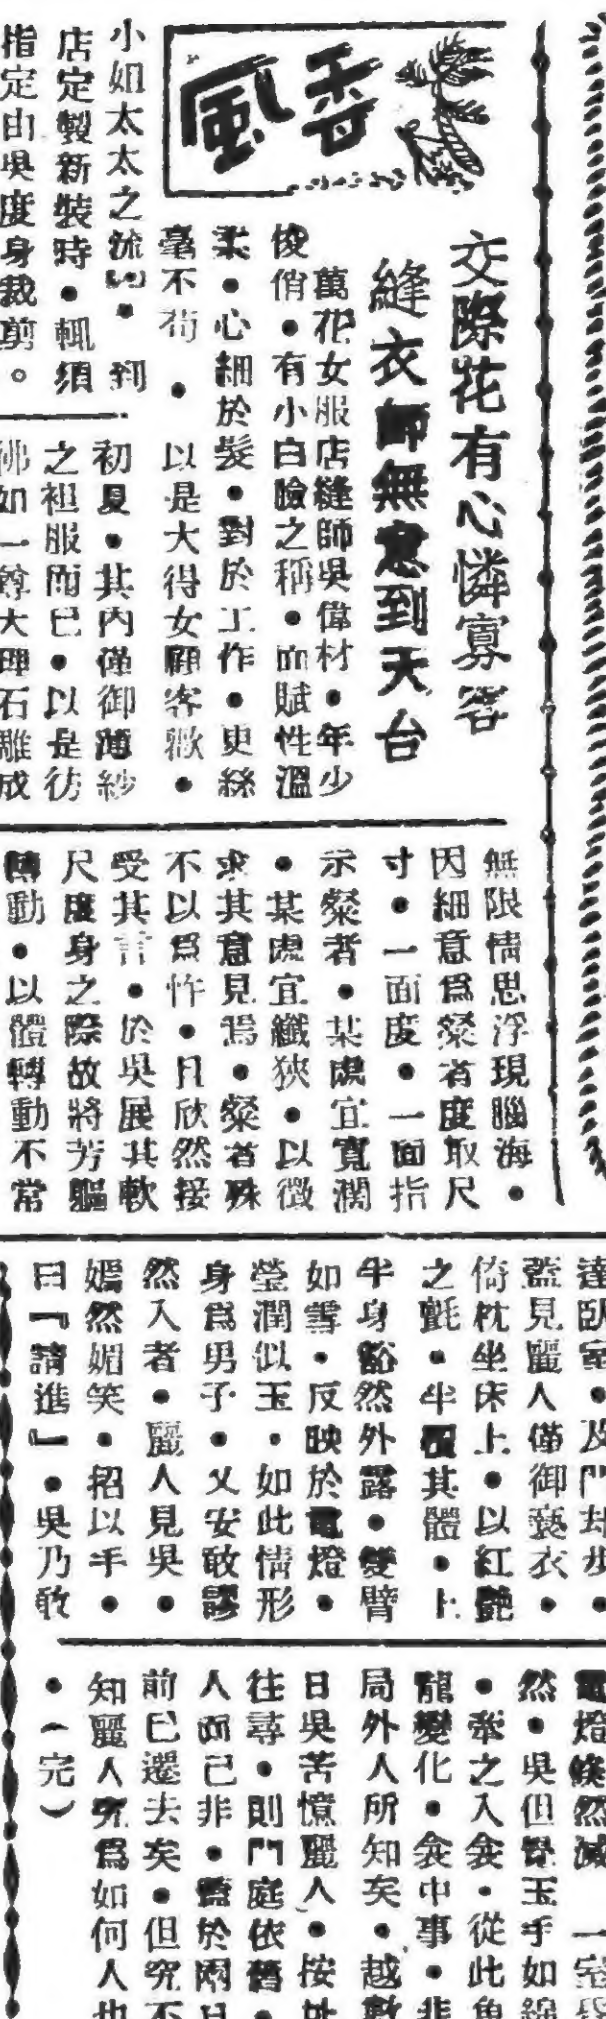 香風
交際花有心憐寡客
縫衣師無意到天台
萬花女服店縫師吳偉材・年少
俊俏・有小白臉之稱・而賦性溫
柔・心細於髮・對於工作・更絲
毫不苟・以是大得女顧客歡・
小姐太太之流・到
店定製新裝時・輒須
指定由吳度身裁剪。
初夏・其內僅御薄紗
之袒服而已・以是彷
彿如一尊大理石雕成
無限情思浮現腦海・
因細意爲粲者度取尺
寸・一面度・一面指
示粲者・某處宜寬濶
・某處宜纖狹・以徵
求其意見焉・粲者殊
不以爲忤・且欣然接
受其言・於吳展其軟
尺度身之際故將芳軀
轉動・以體轉動不常
達臥室・及門却步・
蓋見麗人僅御褻衣・
倚枕坐床上・以紅艷
之氈・半覆其體・上
半身豁然外露・雙臂
如雪・反映於電燈・
瑩潤似玉・如此情形
身爲男子・又安敢謬
然入者・麗人見吳・
嫣然媚笑・招以手・
曰『請進』・吳乃敢
電燈倏然滅 一室
然・吳但覺玉手如綿
・牽之入衾・從此魚
龍變化・衾中事・非
局外人所知矣・越數
日吳苦憶麗人・按址
往尋・則門庭依舊・
人面已非・蓋於兩日
前已遷去矣・但究不
知麗人究爲如何人也
・（完）